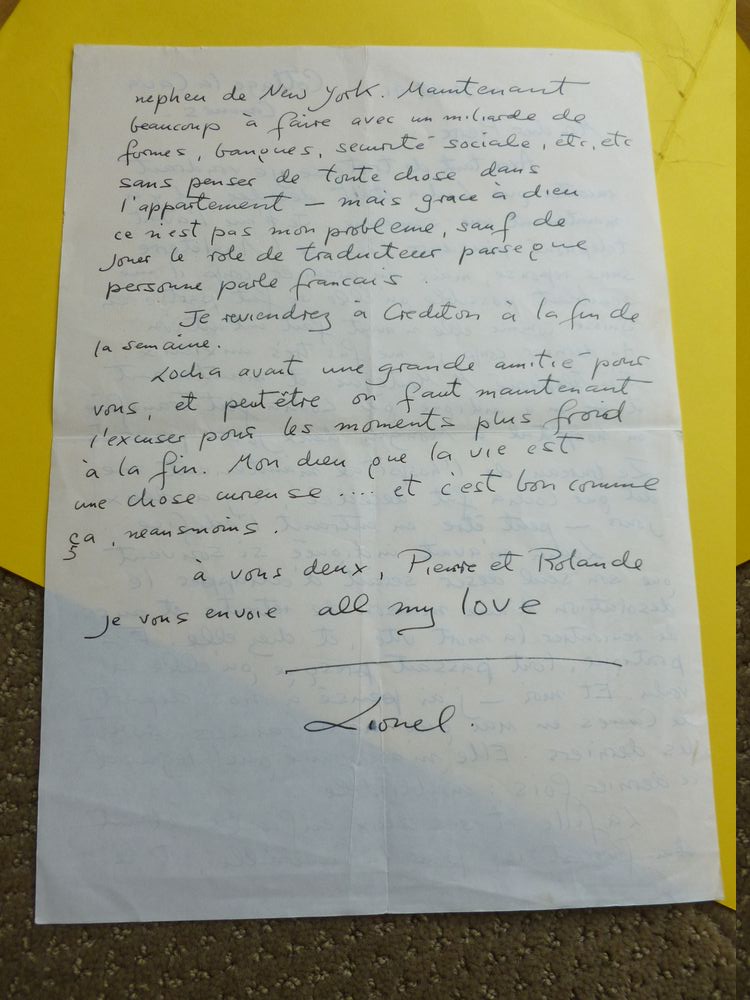 nepheu de New York. Maintenant
beaucoup à faire avec un miliarde de
formes, banques, securité sociale, etc, etc
sans penser de toute chose dans
l'appartement – mais grace à dieu
ce n'est pas mon probleme, sauf de
jouer le role de traducteur parseque
personne parle francais.
Je reviendrez à Crediton à la fin de
la semaine.
Locha avait une grande amitié pour
vous, et peutêtre on faut maintenant
l'excuser pour les moments plus froid
à la fin. Mon dieu que la vie est
une chose curieuse .... et c'est bon comme
ça, neansmoins.
à vous deux, Pierre et Rolande
je vous envoie all my love
Lionel.